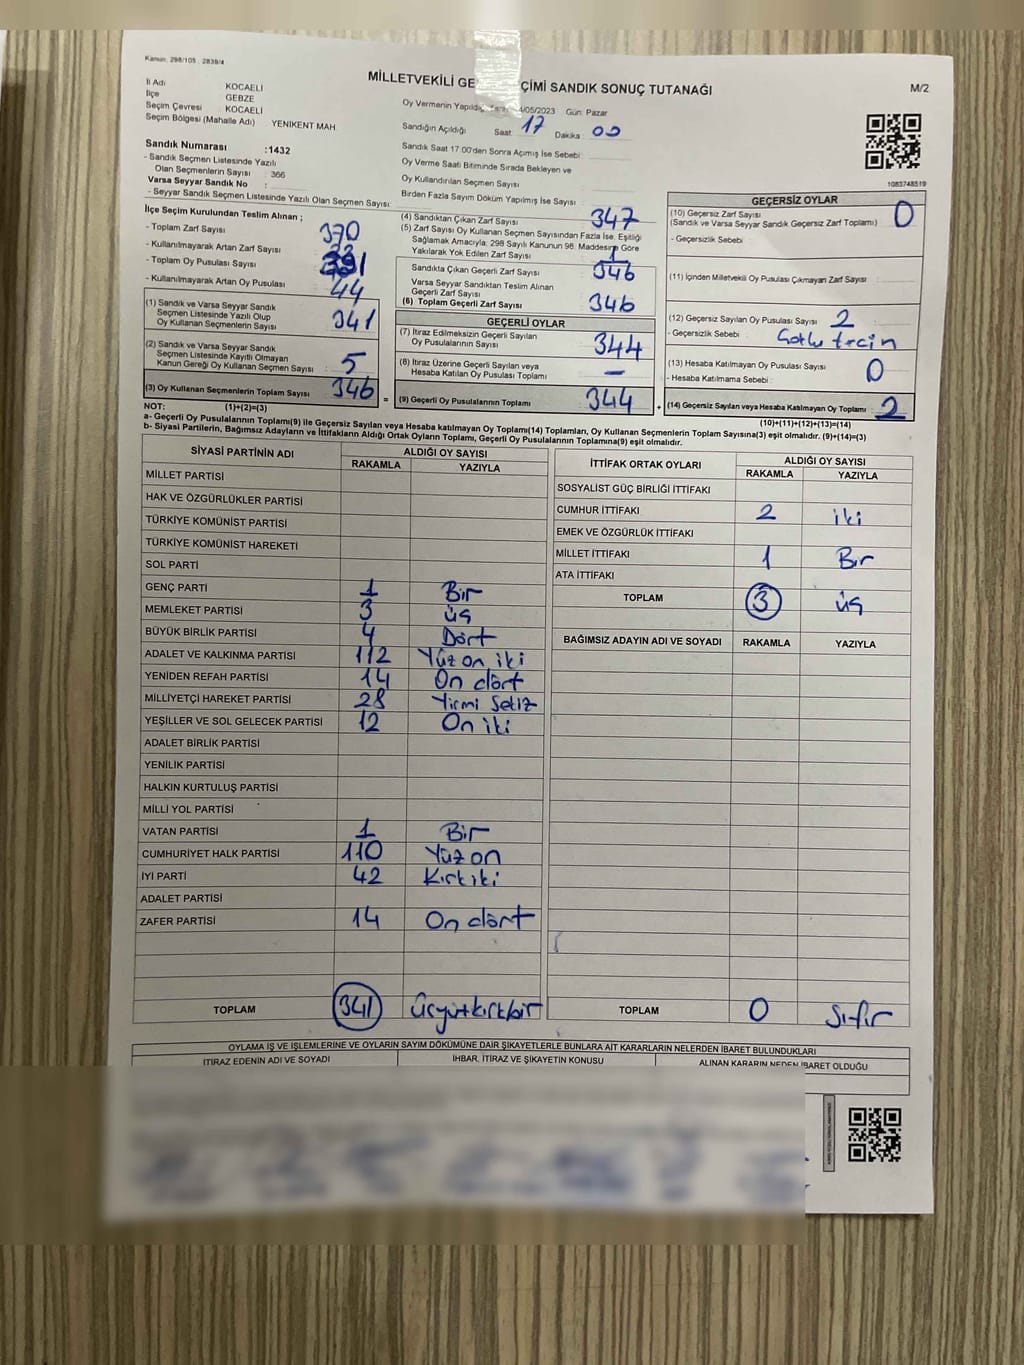 Kanun: 298/105 , 2839/4
MİLLETVEKİLİ GE ÇİMİ SANDIK SONUÇ TUTANAĞI
M/2
İl Adı KOCAELİ
İlçe GEBZE
Seçim Çevresi KOCAELİ
Seçim Bölgesi (Mahalle Adı) YENİKENT MAH.
Sandık Numarası :1432
- Sandık Seçmen Listesinde Yazılı
Olan Seçmenlerin Sayısı : 366
Varsa Seyyar Sandık No :
- Seyyar Sandık Seçmen Listesinde Yazılı Olan Seçmen Sayısı:
Oy Vermenin Yapıldığı 4/05/2023 Gün: Pazar
Sandığın Açıldığı Saat: 17 Dakika: 00
Sandık Saat 17:00'den Sonra Açımış İse Sebebi :
Oy Verme Saati Bitiminde Sırada Bekleyen ve
Oy Kullandırılan Seçmen Sayısı
Birden Fazla Sayım Döküm Yapılmış İse Sayısı :
1083748519
İlçe Seçim Kurulundan Teslim Alınan ;
- Toplam Zarf Sayısı 370
- Kullanılmayarak Artan Zarf Sayısı
- Toplam Oy Pusulası Sayısı
- Kullanılmayarak Artan Oy Pusulası 44
(1) Sandık ve Varsa Seyyar Sandık
Seçmen Listesinde Yazılı Olup
Oy Kullanan Seçmenlerin Sayısı 341
(2) Sandık ve Varsa Seyyar Sandık
Seçmen Listesinde Kayıtlı Olmayan
Kanun Gereği Oy Kullanan Seçmen Sayısı 5
(3) Oy Kullanan Seçmenlerin Toplam Sayısı 346
(4) Sandıktan Çıkan Zarf Sayısı 347
(5) Zarf Sayısı Oy Kullanan Seçmen Sayısından Fazla İse, Eşitliği
Sağlamak Amacıyla; 298 Sayılı Kanunun 98. Maddesine Göre
Yakılarak Yok Edilen Zarf Sayısı 1
Sandıkta Çıkan Geçerli Zarf Sayısı 346
Varsa Seyyar Sandıktan Teslim Alınan
Geçerli Zarf Sayısı
(6) Toplam Geçerli Zarf Sayısı 346
GEÇERLİ OYLAR
(7) İtiraz Edilmeksizin Geçerli Sayılan
Oy Pusulalarının Sayısı: 344
(8) İtiraz Üzerine Geçerli Sayılan veya
Hesaba Katılan Oy Pusulası Toplamı –
= (9) Geçerli Oy Pusulalarının Toplamı 344 +
GEÇERSİZ OYLAR
(10) Geçersiz Zarf Sayısı 0
(Sandık ve Varsa Seyyar Sandık Geçersiz Zarf Toplamı)
- Geçersizlik Sebebi
(11) İçinden Milletvekili Oy Pusulası Çıkmayan Zarf Sayısı
(12) Geçersiz Sayılan Oy Pusulası Sayısı 2
- Geçersizlik Sebebi :
(13) Hesaba Katılmayan Oy Pusulası Sayısı 0
- Hesaba Katılmama Sebebi :
(14) Geçersiz Sayılan veya Hesaba Katılmayan Oy Toplamı 2
NOT: (1)+(2)=(3) (10)+(11)+(12)+(13)=(14)
a- Geçerli Oy Pusulalarının Toplamı(9) ile Geçersiz Sayılan veya Hesaba katılmayan Oy Toplamı(14) Toplamları, Oy Kullanan Seçmenlerin Toplam Sayısına(3) eşit olmalıdır. (9)+(14)=(3)
b- Siyasi Partilerin, Bağımsız Adayların ve İttifakların Aldığı Ortak Oyların Toplamı, Geçerli Oy Pusulalarının Toplamına(9) eşit olmalıdır.
SİYASİ PARTİNİN ADI ALDIĞI OY SAYISI
RAKAMLA YAZIYLA
MİLLET PARTİSİ
HAK VE ÖZGÜRLÜKLER PARTİSİ
TÜRKİYE KOMÜNİST PARTİSİ
TÜRKİYE KOMÜNİST HAREKETİ
SOL PARTİ
GENÇ PARTİ 1 Bir
MEMLEKET PARTİSİ 3 üç
BÜYÜK BİRLİK PARTİSİ 4 Dört
ADALET VE KALKINMA PARTİSİ 112 Yüz on iki
YENİDEN REFAH PARTİSİ 14 On dört
MİLLİYETÇİ HAREKET PARTİSİ 28 Yirmi Sekiz
YEŞİLLER VE SOL GELECEK PARTİSİ 12 On iki
ADALET BİRLİK PARTİSİ
YENİLİK PARTİSİ
HALKIN KURTULUŞ PARTİSİ
MİLLİ YOL PARTİSİ
VATAN PARTİSİ 1 Bir
CUMHURİYET HALK PARTİSİ 110 Yüz on
İYİ PARTİ 42 Kırk iki
ADALET PARTİSİ
ZAFER PARTİSİ 14 On dört
TOPLAM 341 Üçyüzkırkbir
İTTİFAK ORTAK OYLARI ALDIĞI OY SAYISI
RAKAMLA YAZIYLA
SOSYALİST GÜÇ BİRLİĞİ İTTİFAKI
CUMHUR İTTİFAKI 2 iki
EMEK VE ÖZGÜRLÜK İTTİFAKI
MİLLET İTTİFAKI 1 Bir
ATA İTTİFAKI
TOPLAM 3 üç
BAĞIMSIZ ADAYIN ADI VE SOYADI RAKAMLA YAZIYLA
TOPLAM 0 Sıfır
OYLAMA İŞ VE İŞLEMLERİNE VE OYLARIN SAYIM DÖKÜMÜNE DAİR ŞİKAYETLERLE BUNLARA AİT KARARLARIN NELERDEN İBARET BULUNDUKLARI
İTİRAZ EDENİN ADI VE SOYADI İHBAR, İTİRAZ VE ŞİKAYETİN KONUSU ALINAN KARARIN NEDEN İBARET OLDUĞU